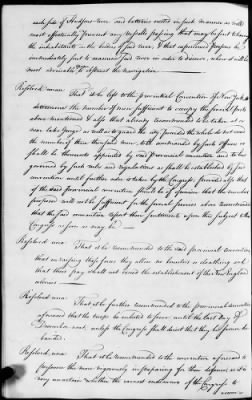 each side of Hudsons river and batteries erected in such manner as will
most effectually prevent any vessels passing that may be sent to harass
the inhabitants on the borders of said river; & that experienced persons be
immediately sent to examine said river in order to discover where it will be
most adviseable to obstruct the navigation
Resolved unan That it be left to the provincial Convention of New York to
determine the number of men sufficient to occupy the several posts
above mentioned & also that already recommended to be taken at or
near Lake George as well as to guard the city Provided the whole do not exceed
the number of three thousand men, to be commanded by such officers as
shall be thereunto appointed by said provincial convention and to be
governed by such rules and regulations as shall be established by said
convention until farther order is taken by the Congress; provided also that
if the said provincial convention should be of opinion that the number
proposed will not be sufficient for the several services above mentioned
that the said convention report their sentiments upon this subject to the
Congress as soon as may be
Resolved una That it be recommended to the said provincial convention
that in raising those forces they allow no bounties or cloathing and
that their pay shall not exceed the establishment of the New England
colonies
Resolved una That it be further recommended to the provincial convention
aforesaid that the troops be enlisted to serve until the last day of
December next unless the Congress shall direct that they be sooner dis
banded
Resolved una That it be recommended to the convention aforesaid to
persevere the more vigorously in preparing for their defence as it is
very uncertain whether the earnest endeavours of the Congress to